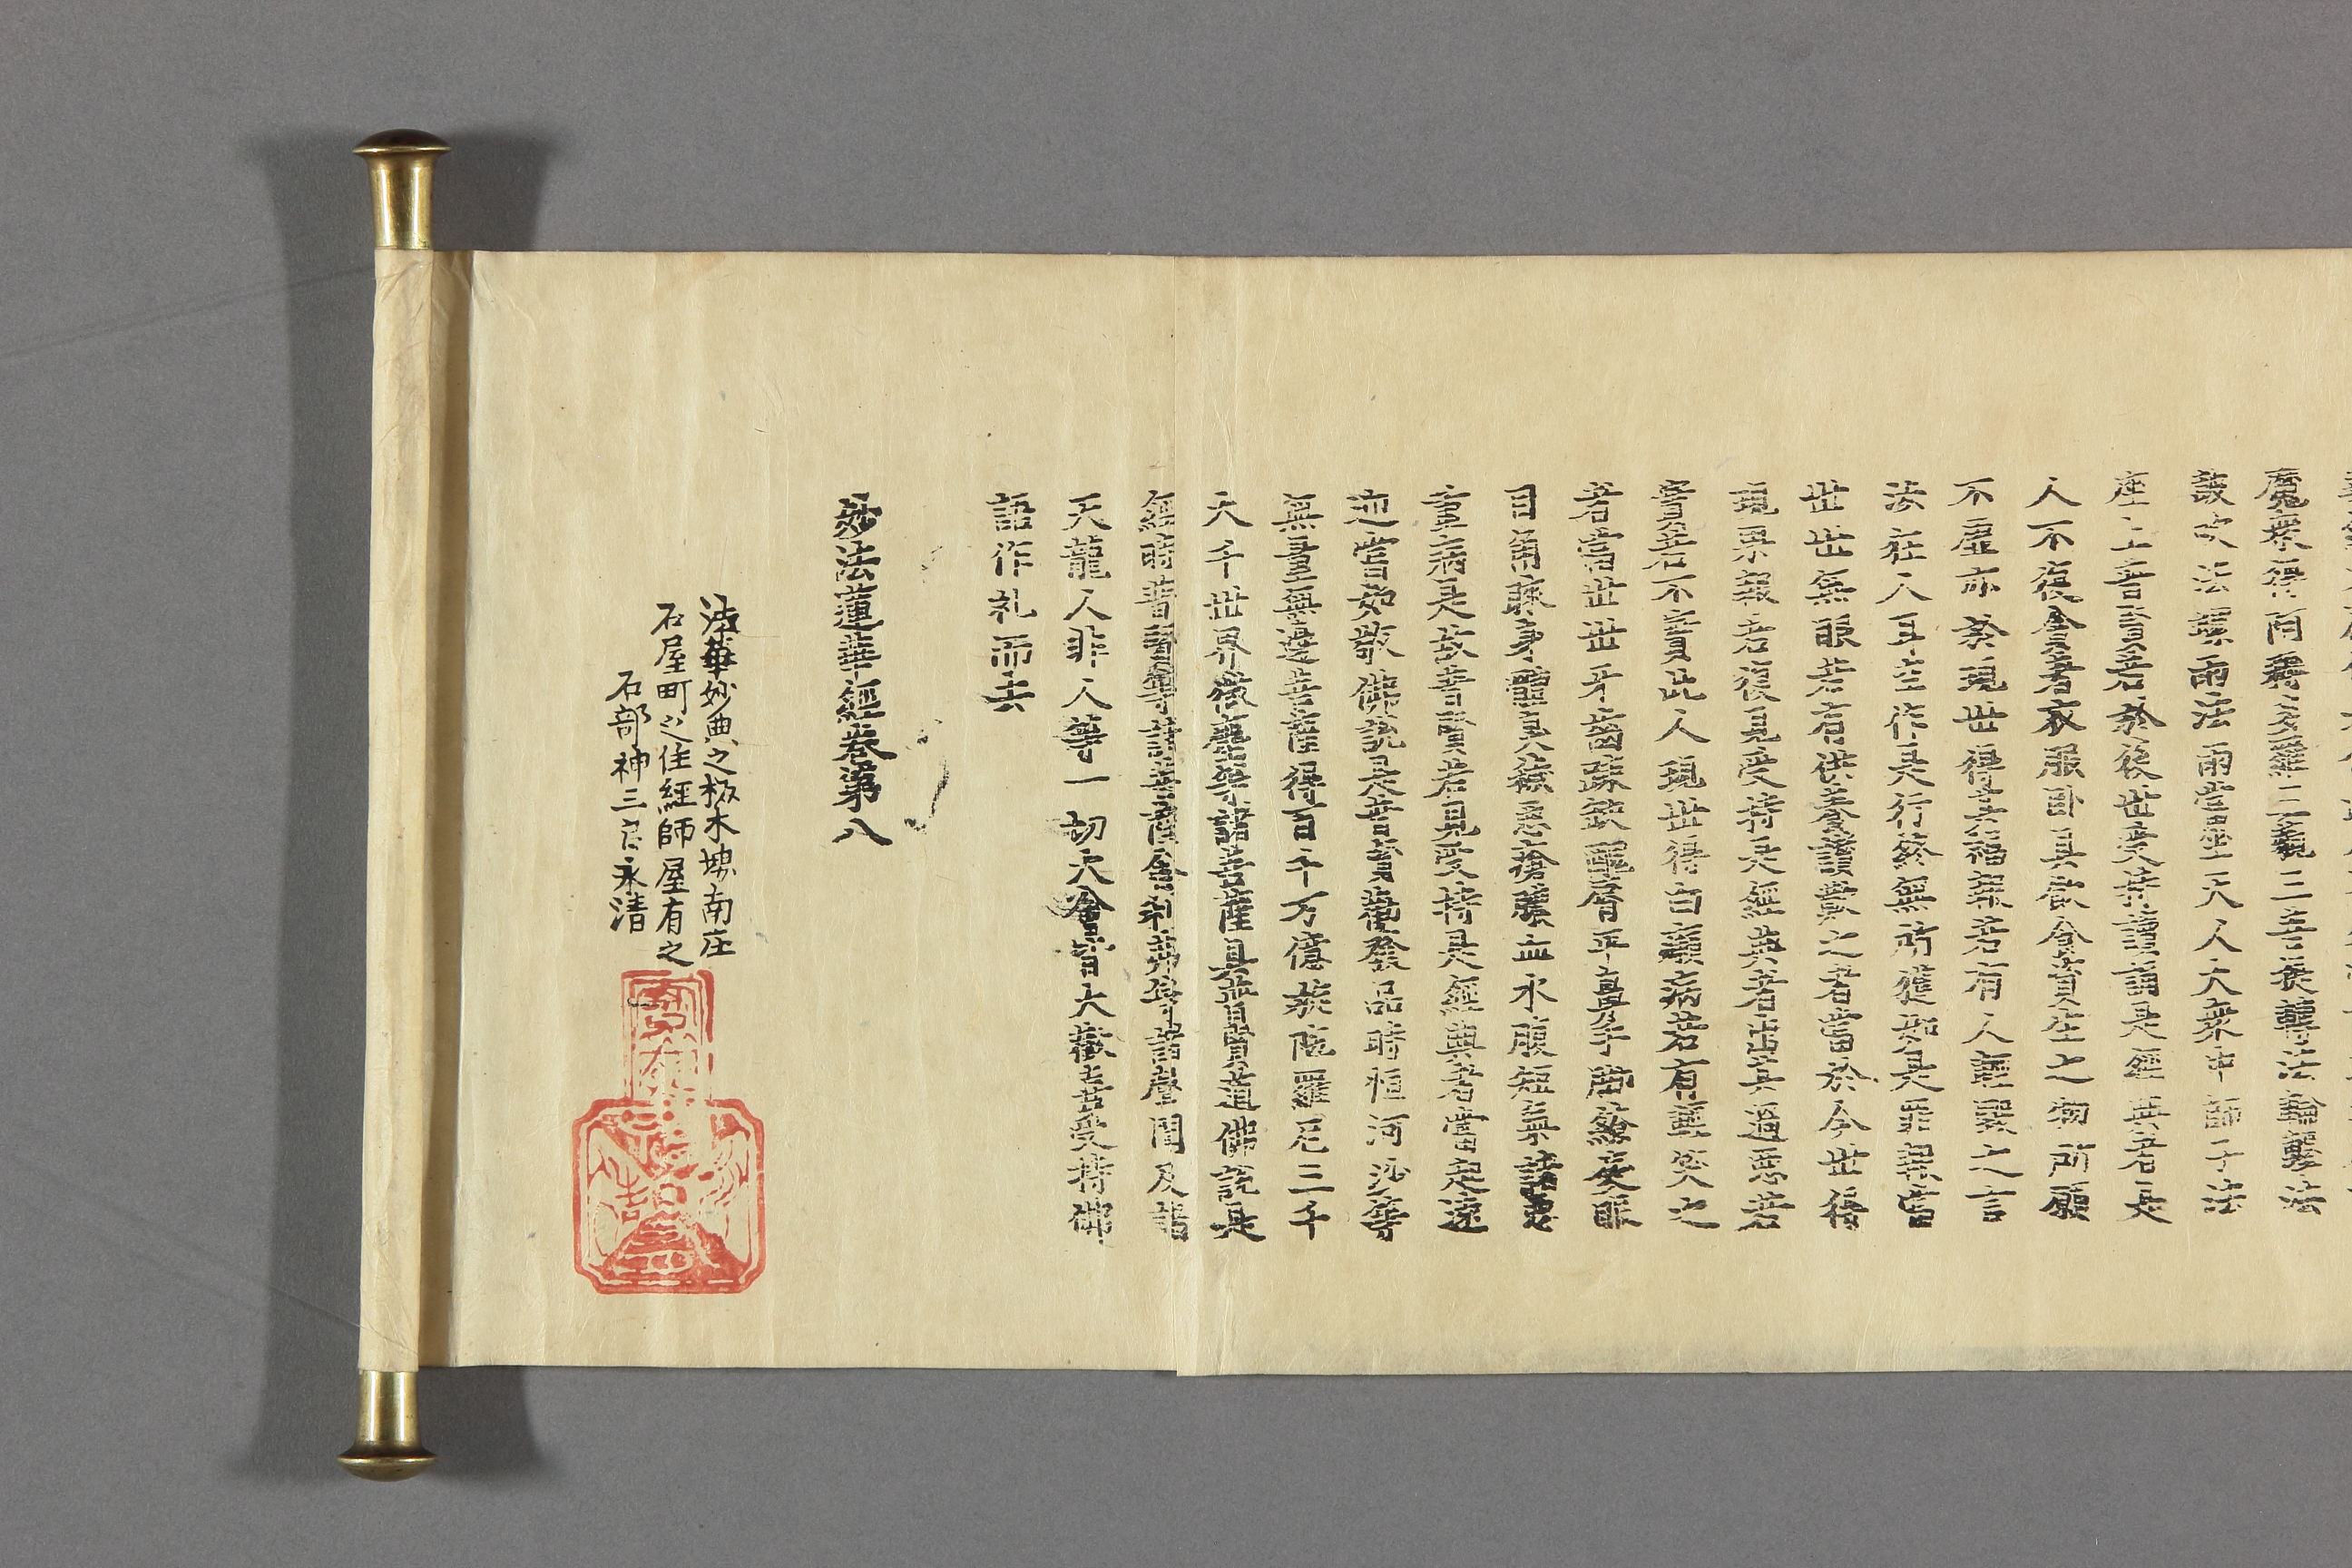 魔衆得阿耨多羅三藐三菩提轉法輪擊法
皷吹法螺雨法雨當坐天人大衆中師子法
座上普賢若於後世受持讀誦是經典者是
人不復貪著衣服卧具飲食資生之物所願
不虛亦於現世得其福報若有人輕毀之言
汝狂人耳空作是行終無所獲如是罪報當
世世無眼若有供養讃歎之者當於今世得
現果報若復見受持是經典者出其過惡若
實若不實此人現世得白癩病若有輕笑之
者當世世牙齒踈缺醜脣平鼻手脚繚戾眼
目角睞身體臭穢惡瘡膿血水腹短氣諸惡
重病是故普賢若見受持是經典者當起遠
迎當如敬佛說是普賢勸發品時恒河沙等
無量無邊菩薩得百千万億旋陀羅尼三千
大千世界微塵等諸菩薩具普賢道佛說是
經時普賢等諸菩薩舍利弗等諸聲聞及諸
天龍人非人等一切大會皆大歡喜受持佛
語作礼而去
妙法蓮華經卷第八
法華妙典之板木堺南庄
石屋町ニ之住經師屋有之
石部神三良永清